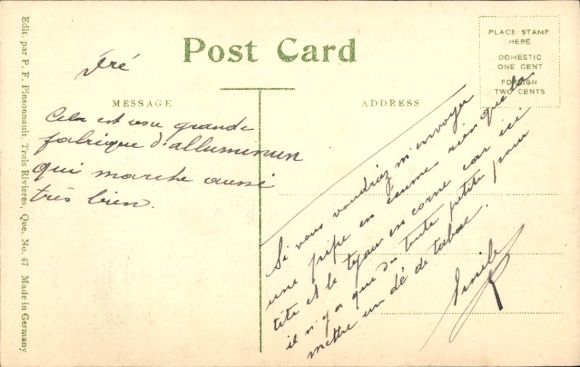 Edit. par P. F. Pinsonnault, Trois Rivieres, Que. No. 47 Made in Germany
Post Card
PLACE STAMP
HERE
DOMESTIC
ONE CENT
FOREIGN
TWO CENTS
MESSAGE
ADDRESS
Cela est une grande
fabrique d'allumenun
qui marche aussi
très bien.
Si vous voudriez m'envoyer
une pipe en écume rien que la
tête et le tuyau en corne car ici
il n'y a que du toute petite pour
mettre un dé de tabac.